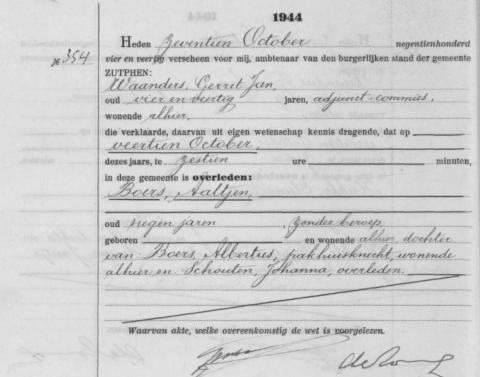 1944
Heden zeventien October negentienhonderd
№ 354 vier en veertig verscheen voor mij, ambtenaar van den burgerlijken stand der gemeente
ZUTPHEN:
Waanders, Gerrit Jan,
oud vier en veertig jaren, adjunct-commies,
wonende alhier.
die verklaarde, daarvan uit eigen wetenschap kennis dragende, dat op
veertien October,
dezes jaars, te zestien ure minuten,
in deze gemeente is overleden:
Boers, Aaltjen,
oud negen jaren, zonder beroep
geboren en wonende alhier, dochter
van Boers, Albertus, pakhuisknecht, wonende
alhier en Schouten, Johanna, overleden.
Waarvan akte, welke overeenkomstig de wet is voorgelezen.